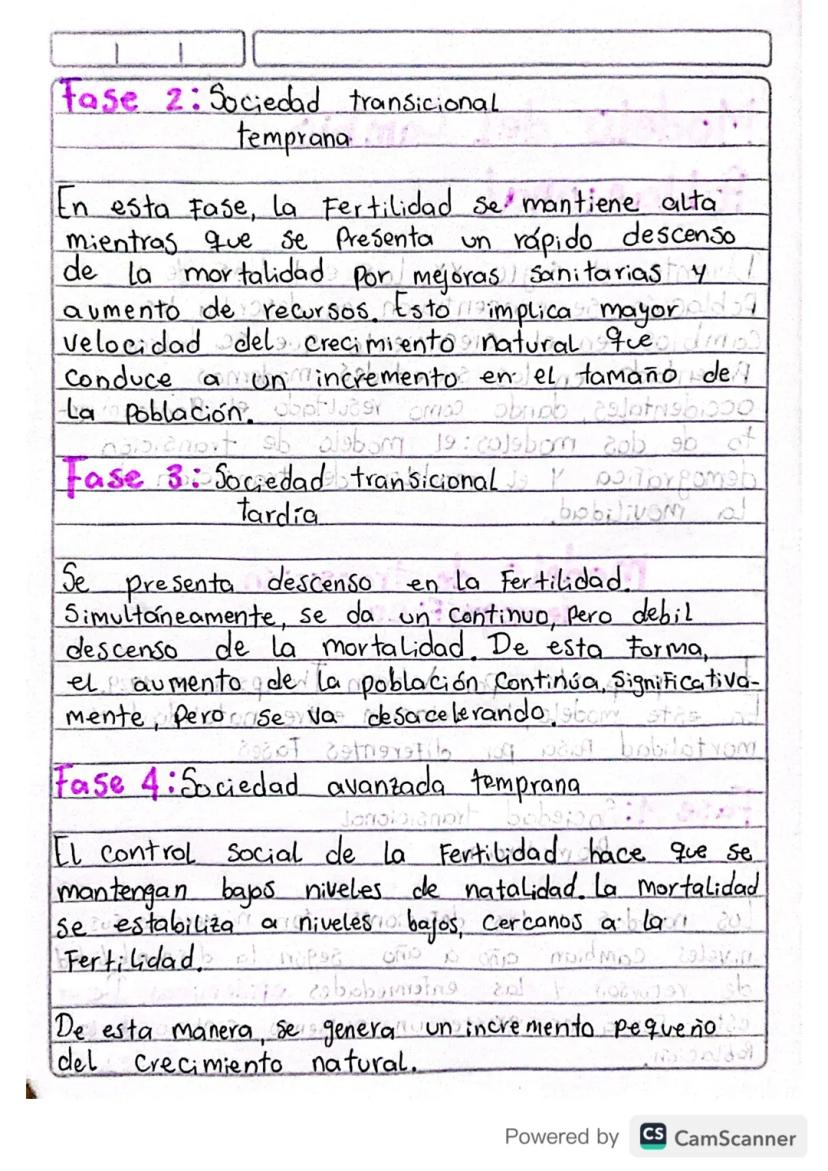 Fase 2: Sociedad transicional
temprana
En esta Fase, la Fertilidad se mantiene alta
mientras que se Presenta un rápido descenso
de la mortalidad por mejoras sanitarias y
aumento de recursos. Esto implica mayor
velocidad del crecimiento natural que
conduce a un incremento en el tamaño de
la Población.
Fase 3: Sociedad transicional
tardía
Se presenta descenso en la Fertilidad.
Simultáneamente, se da un continuo, pero debil
descenso de la mortalidad. De esta Forma,
el aumento de la población continúa, Significativa-
mente, Pero se va desacelerando.
Fase 4: Sociedad avanzada temprana
El control Social de la Fertilidad hace que se
mantengan bajos niveles de natalidad. La Mortalidad
se estabiliza a niveles bajos, cercanos a la
Fertilidad.
De esta manera, se genera un incremento pequeño
del crecimiento natural.
Powered by CS CamScanner